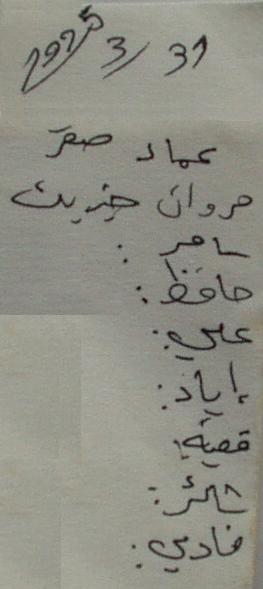 31/3/
عماد صقر
مروان
سامر :
حافظ :
علي :
إياد :
قصي :
ثائر :
فادي :